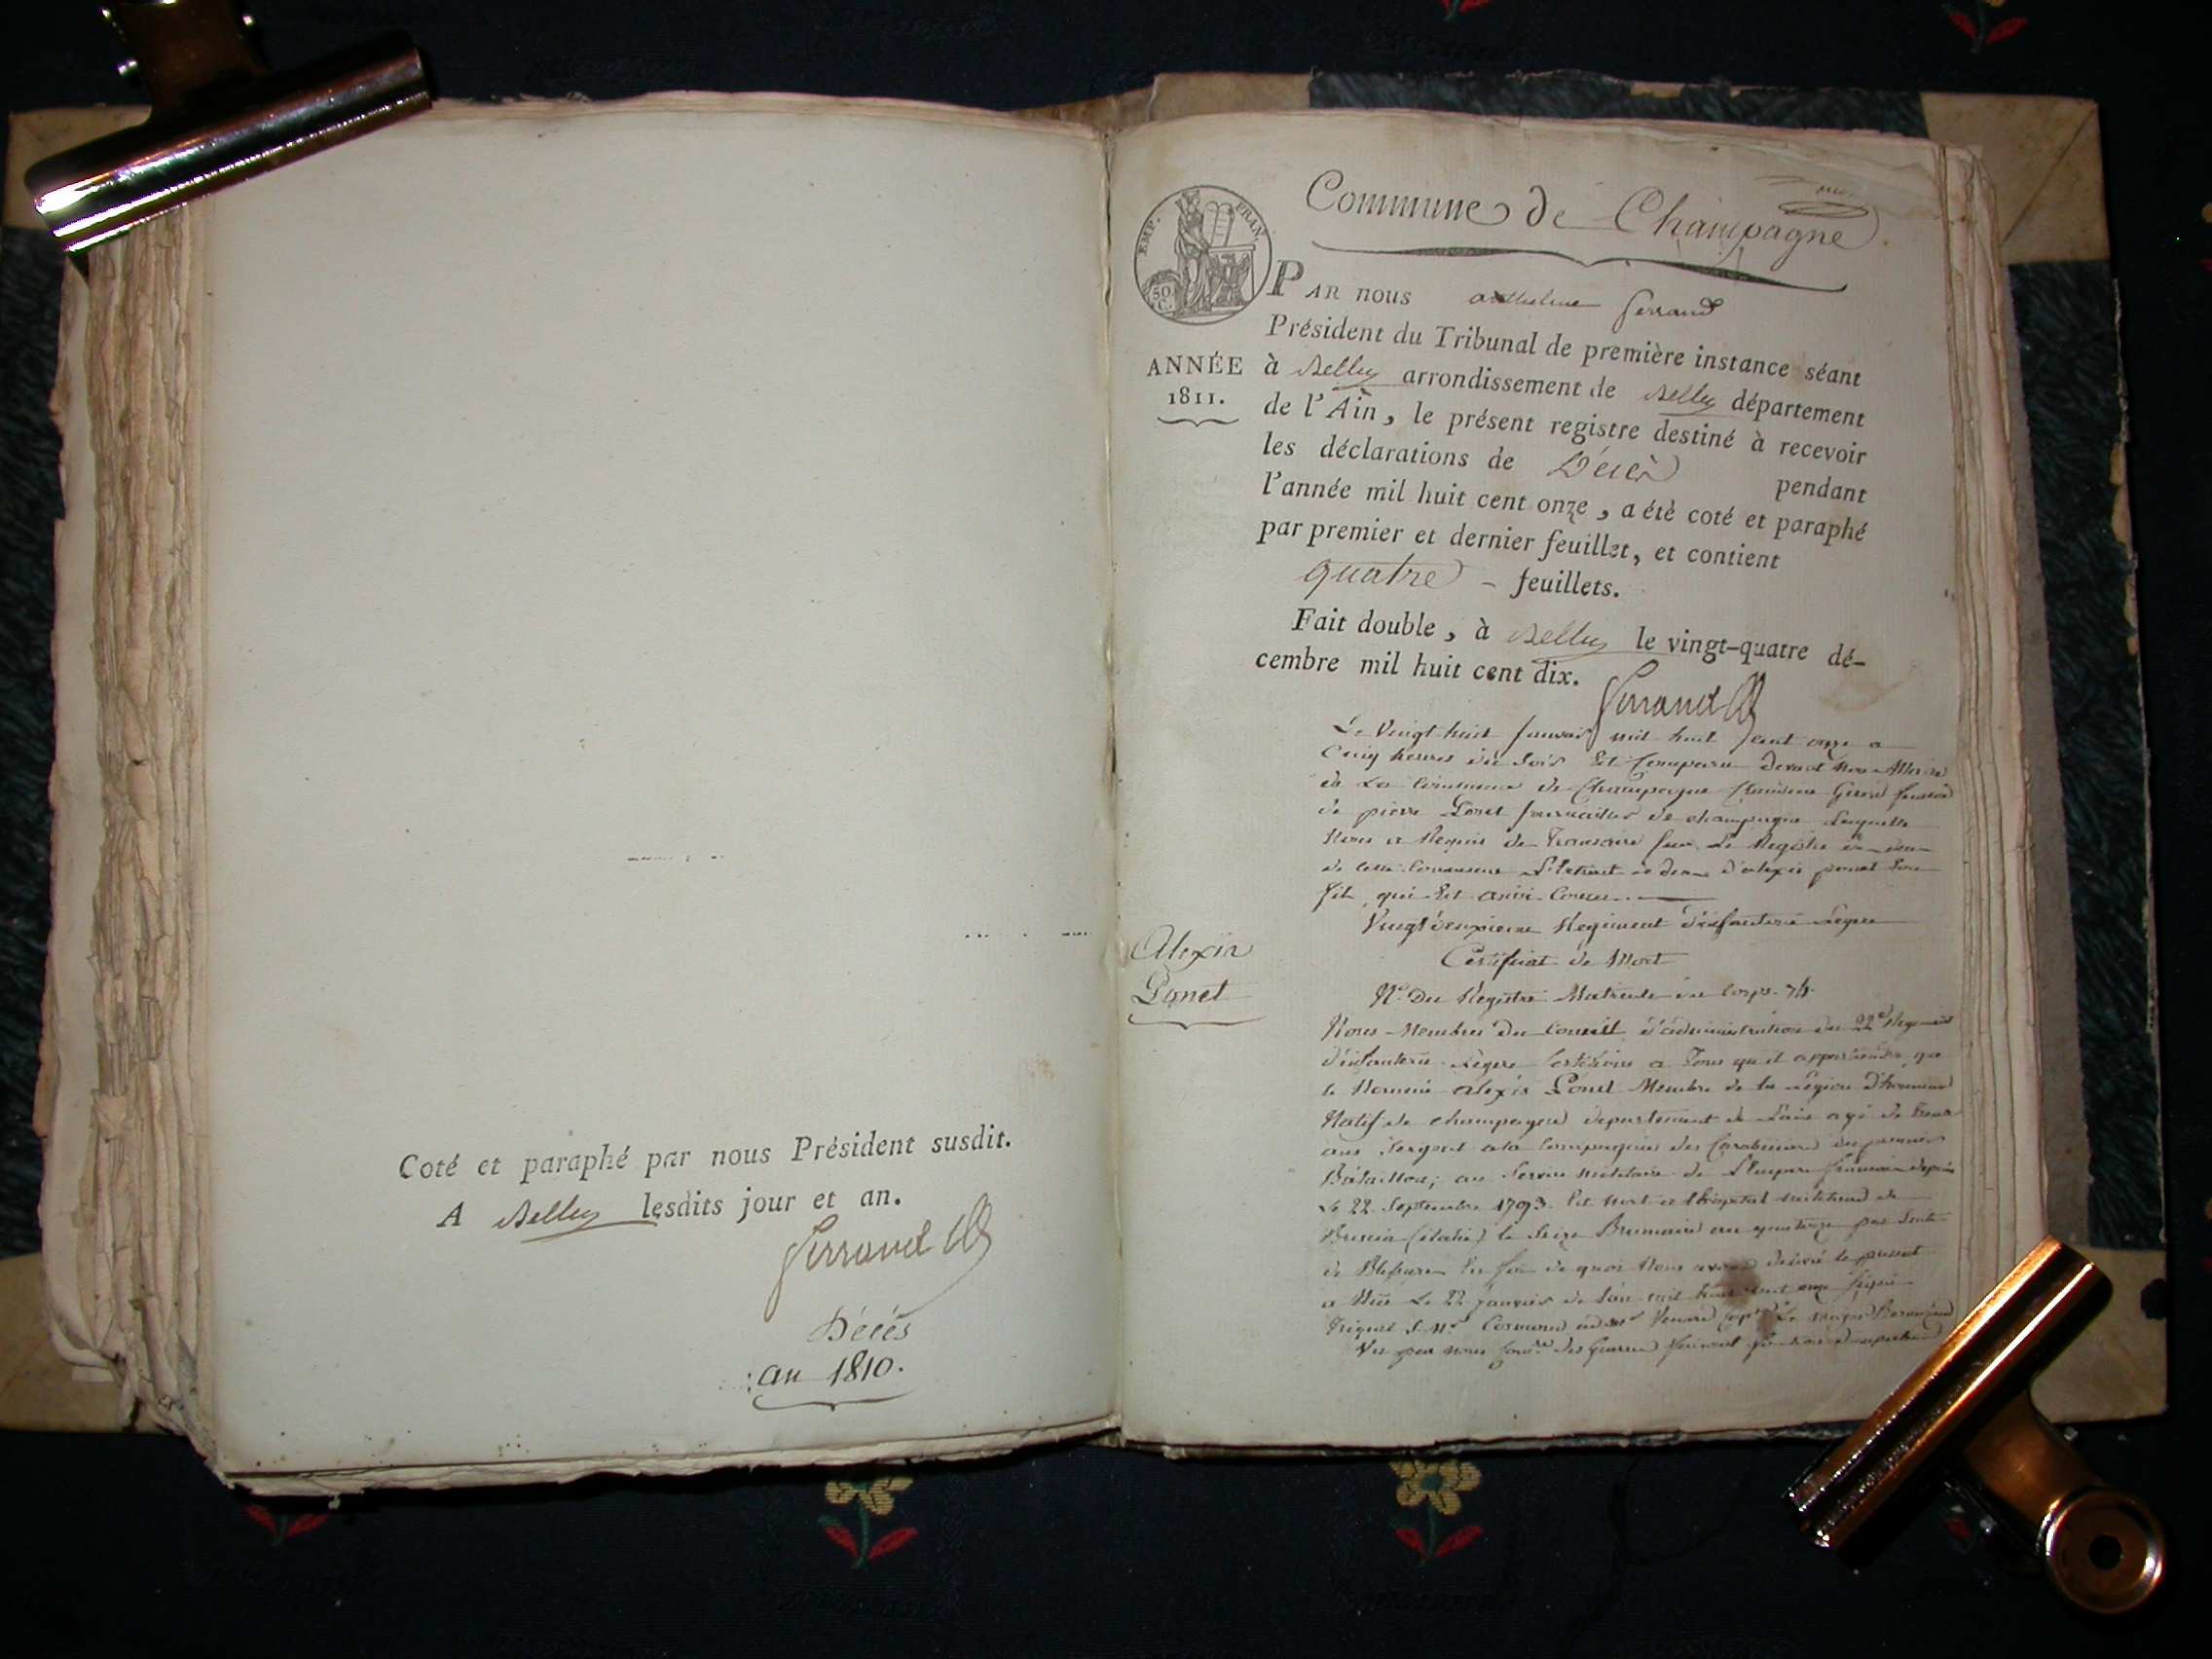 Coté et paraphé par nous Président susdit.
A Belley lesdits jour et an.
Ferrand
Décés
an 1810.
Commune de Champagne
EMP. FRAN.
50 C.
PAR nous anthelme ferrand
Président du Tribunal de première instance séant
ANNÉE
1811.
à Belley arrondissement de Belley département
de l'Ain, le présent registre destiné à recevoir
les déclarations de Décès pendant
l'année mil huit cent onze, a étè coté et paraphé
par premier et dernier feuillet, et contient
quatre - feuillets.
Fait double, à Belley le vingt-quatre dé-
cembre mil huit cent dix.
Ferrand
Le Vingt huit Janvier mil huit Cent onze a
Cinq heures du soir Est Comparu devant Nous Maire
de La Commune de Champagne
de pierre Ponet Journailler de champagne Laquelle
Nous a Requis de Transcrire sur Le Registre
de cette Commune L'Extrait d'alexis ponet Son
fils, qui Est ainsi Concu
Vingt deuxieme Regiment d'infanterie Legere
Certificat de Mort
Alexis
Ponet
No. Du Registre Matricule du Corps. 74.
Nous Membres Du Conseil d'administration du 22e Regiment
d'infanterie Légere Certifions a Tous qu'il appartiendra que
le Nommé alexis Ponet Membre de la Légion d'honneur
Natif de champagne departement de Lain agé de
ans Sergent a la Compagnie des Carabiniers du premier
Bataillon, au Service militaire de L'Empire francais depuis
Le 22 Septembre 1793. Est Mort a l'hopital militaire de
Brescia (italie) le Seize Brumaire an quatorze par Suite
de Blessures En foi de quoi Nous avons délivré le present
a Nice Le 22 janvier de l'an mil huit cent onze Signé
Vu par nous des Guerres